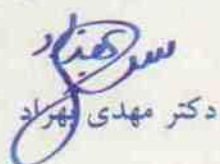 دکتر مهدی بهزاد